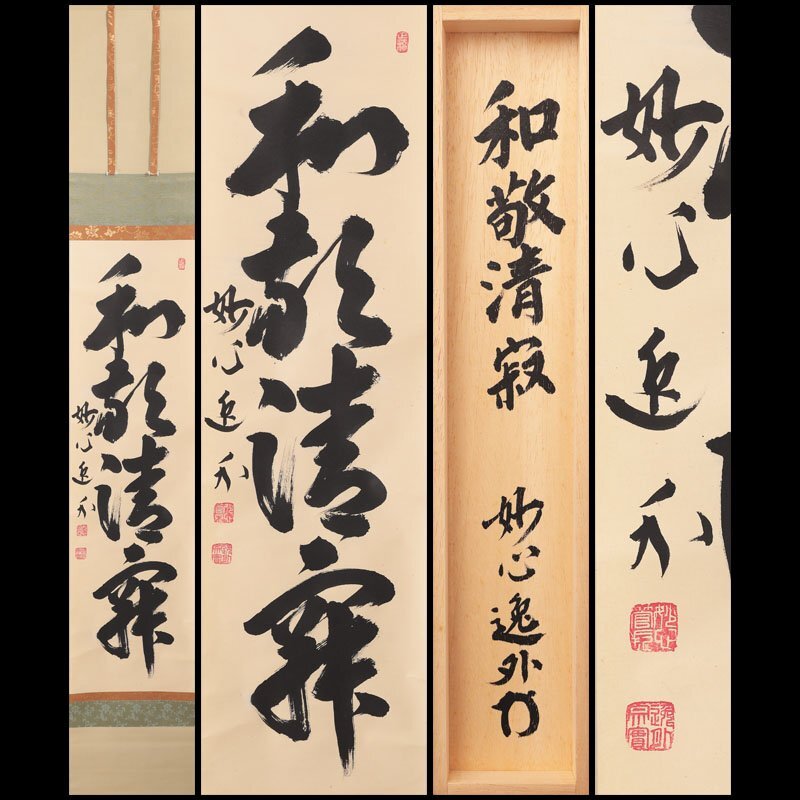 和敬清寂
妙心逸外
和敬清寂
妙心逸外
和敬清寂
妙心逸外
妙心逸外
妙心管長